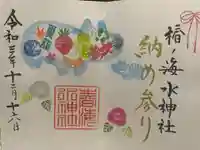 椿ノ海水神社
納め参り
令和三年十二月十日